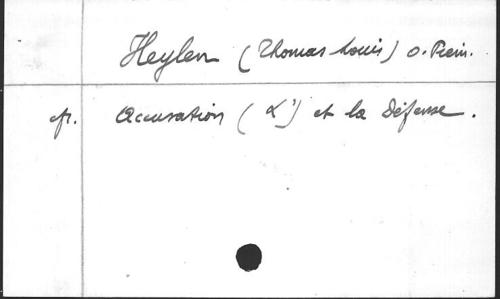 Heylen (Thomas Louis) O. Prem.
cfr. Accusation (L') et la Défense.